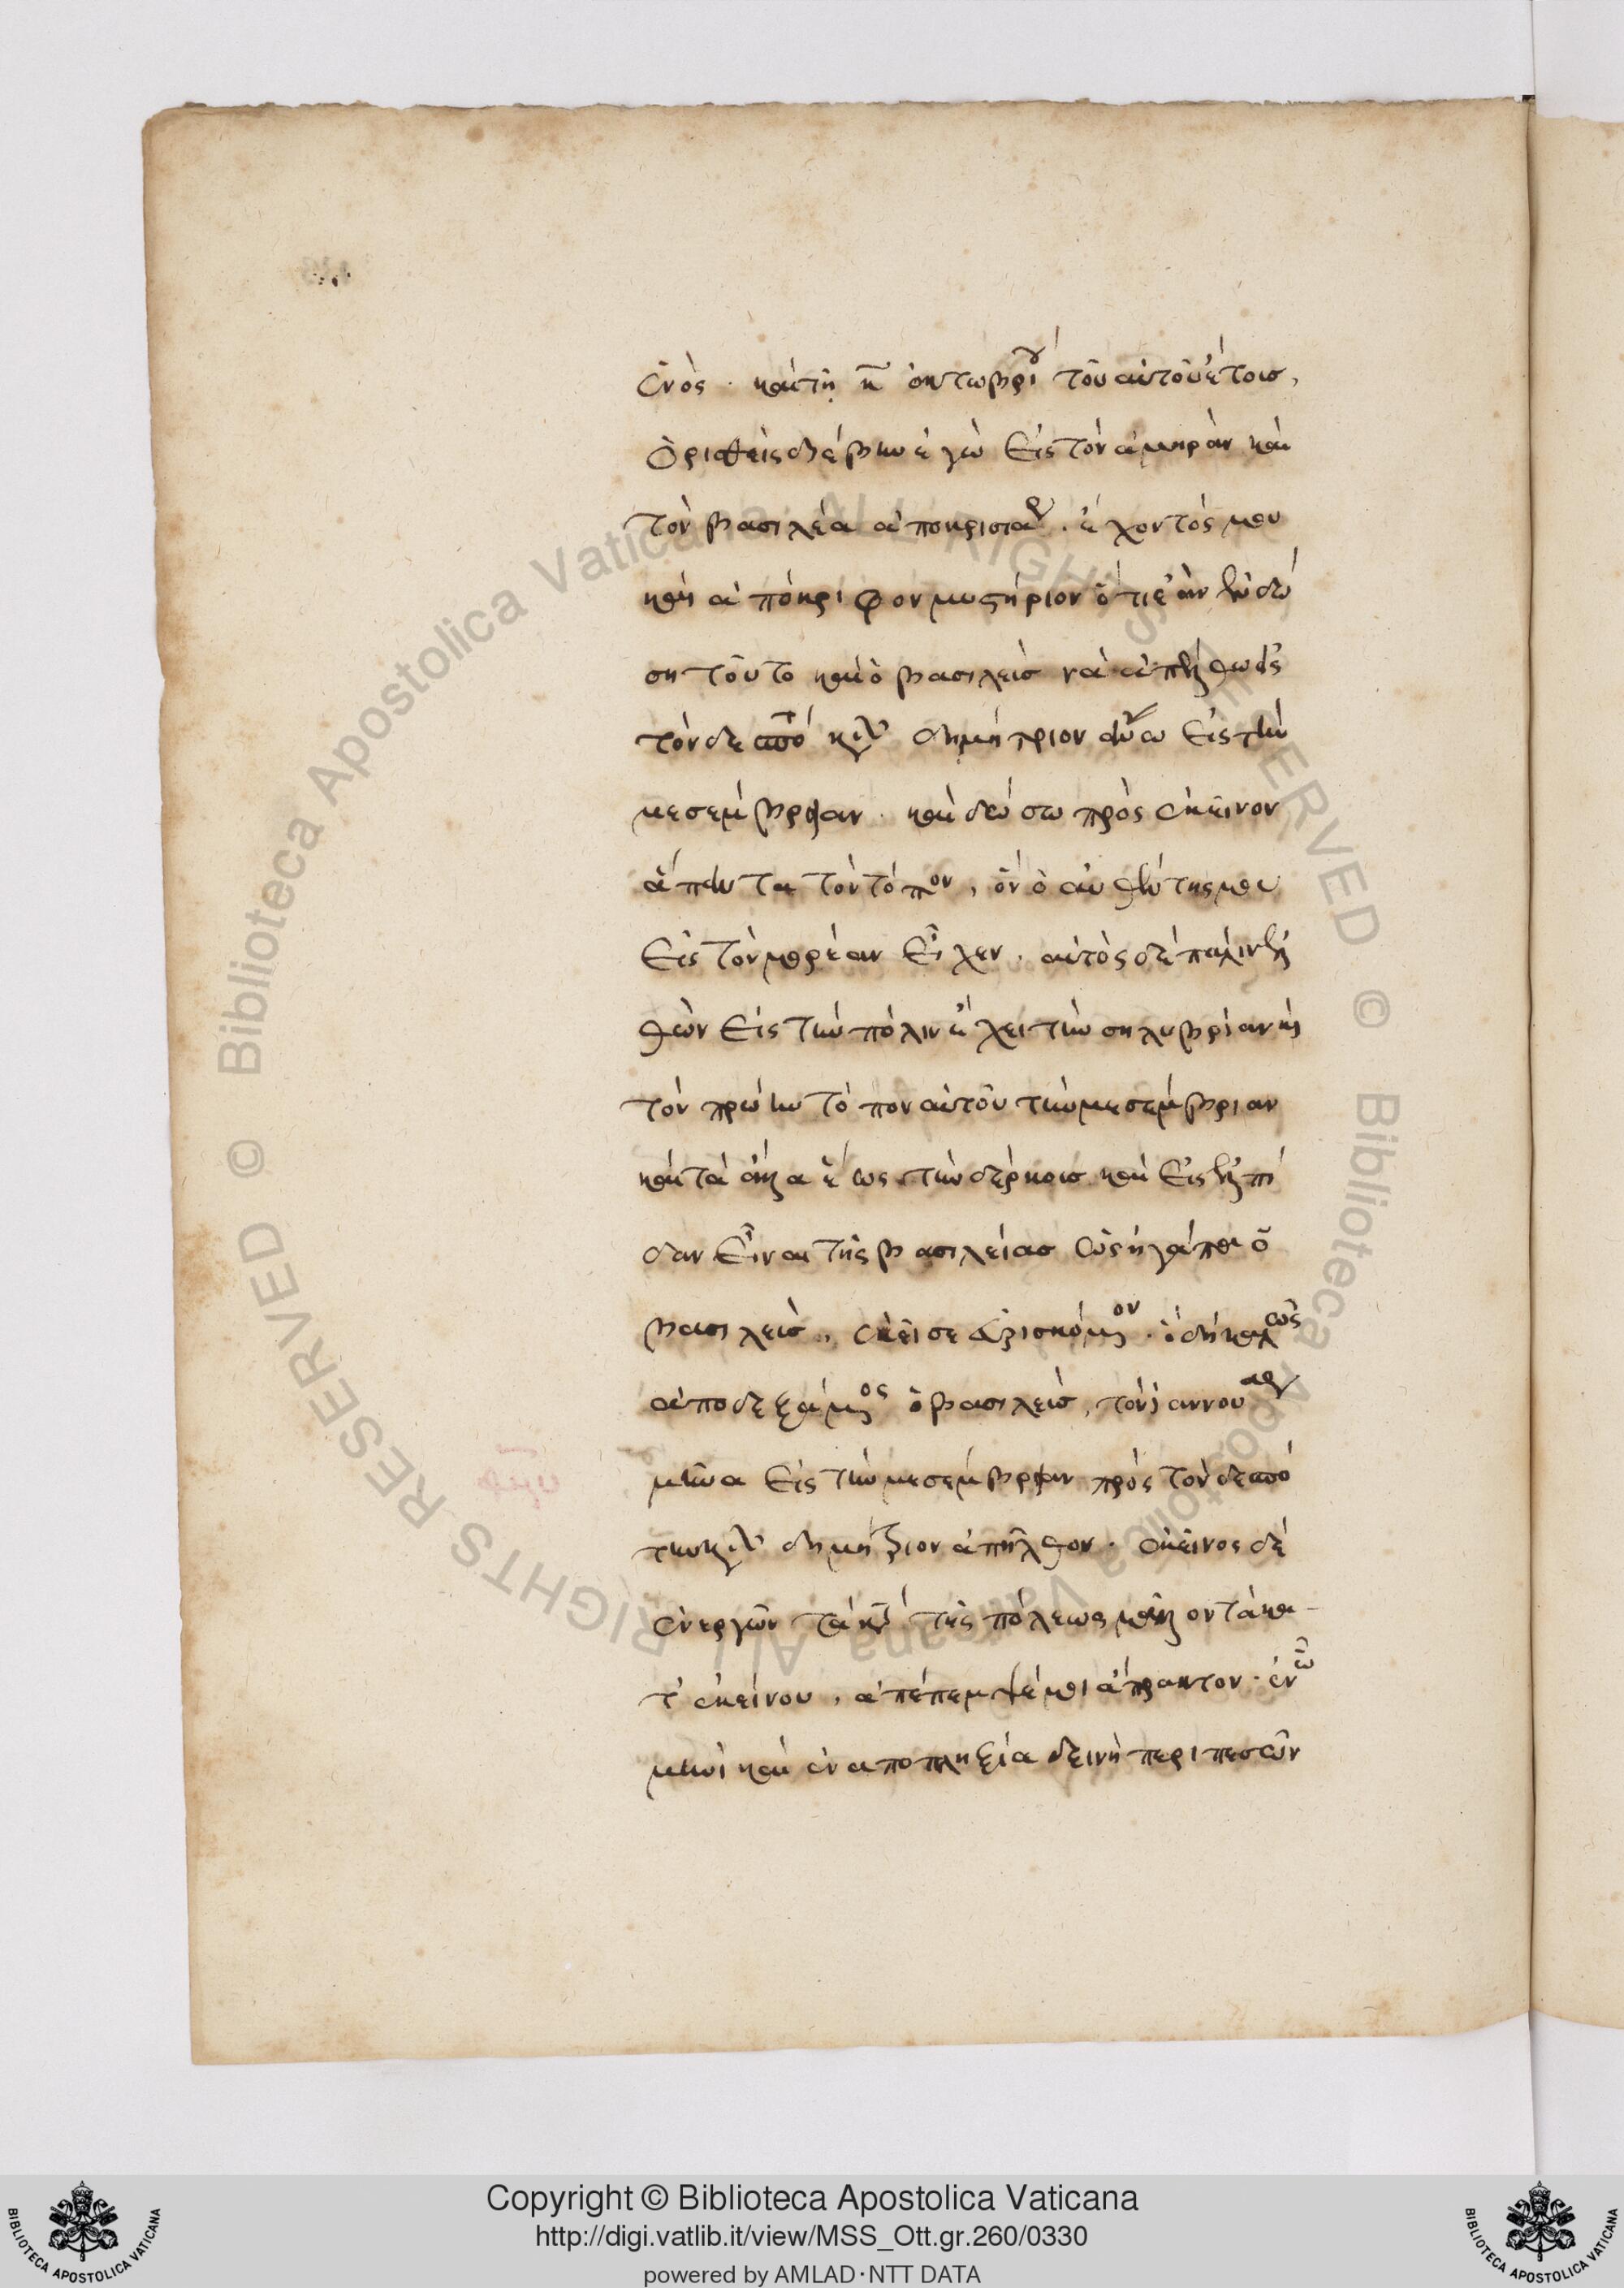 ἑνὸς. καὶ τῇ κ̅ ὀκτωβρίου τοῦ αὐτοῦ ἔτους,
Ὁρισθεὶς διέβην ἐγὼ εἰς τὸν ἀμηρᾶν καὶ
τὸν βασιλέα ἀποκρισιάρης. ἔχοντός μου
καὶ ἀπόκριφον μυστήριον ὅτι ἐὰν ἐνδώ
ση τοῦτο καὶ ὁ βασιλεὺς νὰ ἀπέλθω εἰς
τὸν δεσπότην κῦρ δημήτριον εἰς τὴν
μεσέμβριαν. καὶ δώσω πρὸς ἐκεῖνον
ἅπαντα τὸν τόπον, ὃν ὁ αὐθέντης μου
εἰς τὸν μορέαν εἶχεν. αὐτὸς δὲ πάλιν ἐλ
θὼν εἰς τὴν πόλιν ἔχει τὴν σηλυβρίαν καὶ
τὸν πρώην τόπον αὐτοῦ τὴν μεσέμβριαν
καὶ τὰ ἐκεῖ ἕως τὴν δέρκους καὶ εἰς ἐλπί
δαν εἶναι τῆς βασιλείας ὡς ἠγάπα ὁ
βασιλεὺς, ἐκεῖσε εὑρισκόμενον. ὃ δὴ καλῶς
ἀποδεξάμενος ὁ βασιλεὺς, τὸν ἰαννουάριον
μῆνα εἰς τὴν μεσέμβριαν πρὸς τὸν δεσπό
την κῦρ δημήτριον ἀπῆλθον. ἐκεῖνος δὲ
ἐνεργῶν τὰ κατὰ τῆς πόλεως μᾶλλον τὰ κα-
τ' ἐκείνου, ἀπέπεμψέ με ἄπρακτον. ἐν ᾧ
μηνὶ καὶ ἐν ἀποπληξία δεινῇ περιπεσὼν
Copyright © Biblioteca Apostolica Vaticana
http://digi.vatlib.it/view/MSS_Ott.gr.260/0330
powered by AMLAD·NTT DATA
BIBLIOTECA APOSTOLICA VATICANA
BIBLIOTECA APOSTOLICA VATICANA
© Biblioteca Apostolica Vaticana ALL RIGHTS RESERVED © Biblioteca Apostolica Vaticana ALL RIGHTS RESERVED